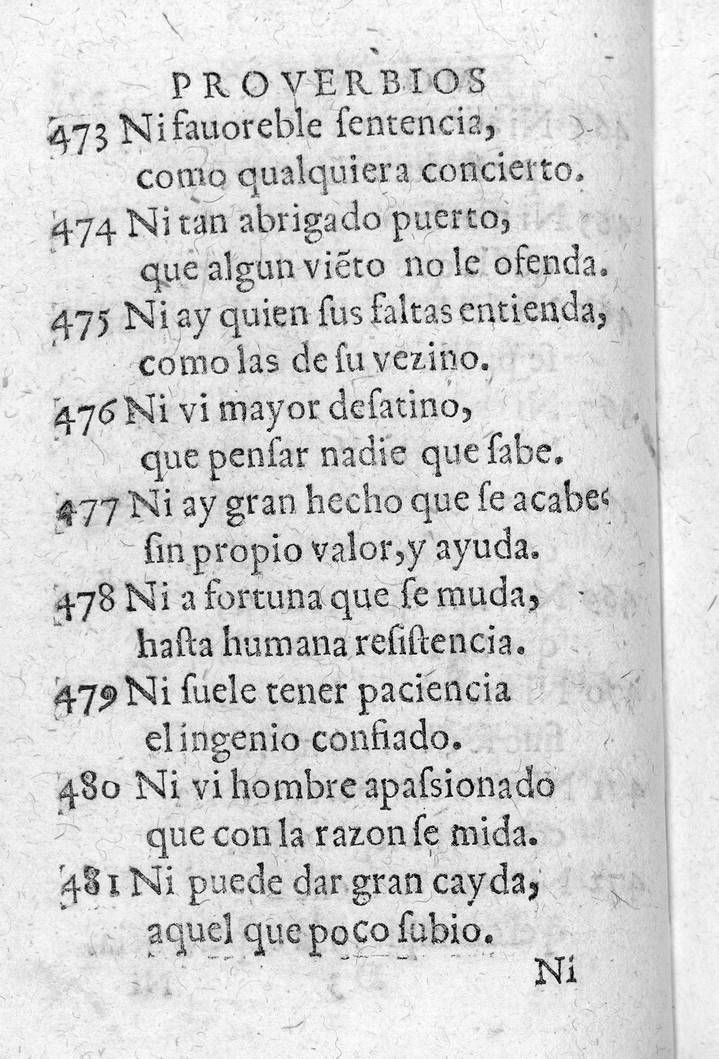 PROVERBIOS
473 Ni fauoreble ſentencia,
como qualquiera concierto.
474 Ni tan abrigado puerto,
que algun viẽto no le ofenda.
475 Ni ay quien ſus faltas entienda,
como las de ſu vezino.
476 Ni vi mayor deſatino,
que penſar nadie que ſabe.
477 Ni ay gran hecho que ſe acabe
ſin propio valor,y ayuda.
478 Ni a fortuna que ſe muda,
haſta humana reſiſtencia.
479 Ni ſuele tener paciencia
el ingenio confiado.
480 Ni vi hombre apaſsionado
que con la razon ſe mida.
481 Ni puede dar gran cayda,
aquel que poco ſubio.
Ni